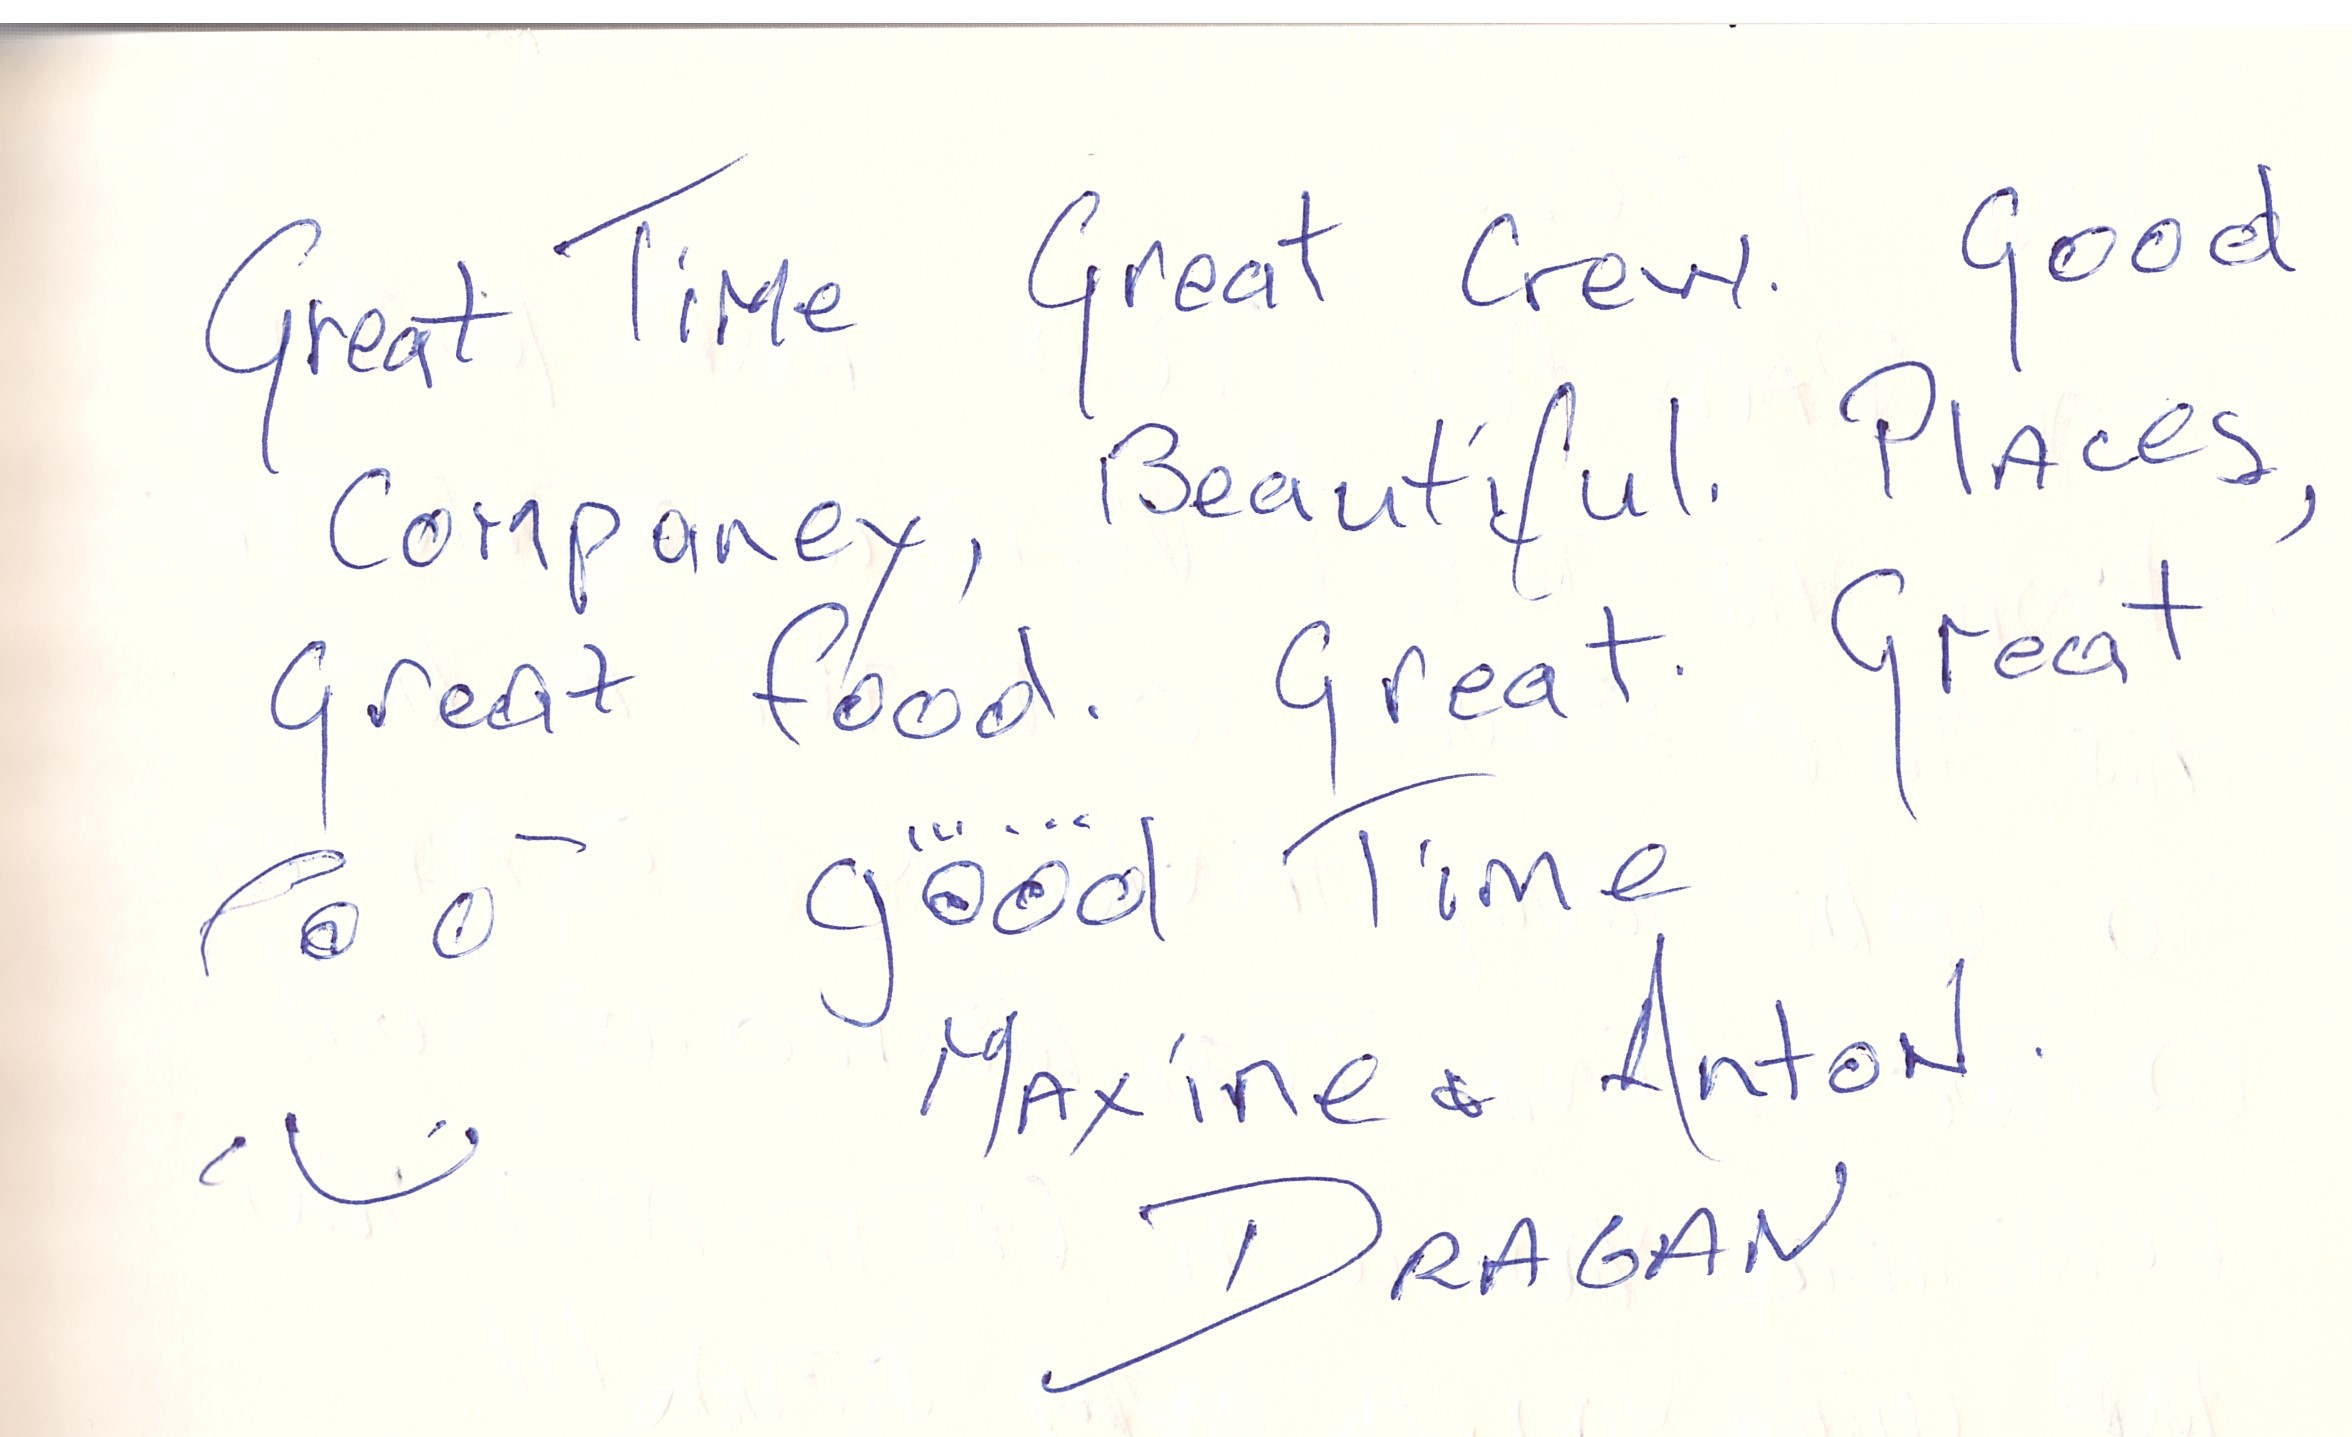 Great Time Great Crew. Good
Companey, Beautiful. Places,
Great food. Great. Great
göööd Time
Maxine & Anton.
DRAGAN